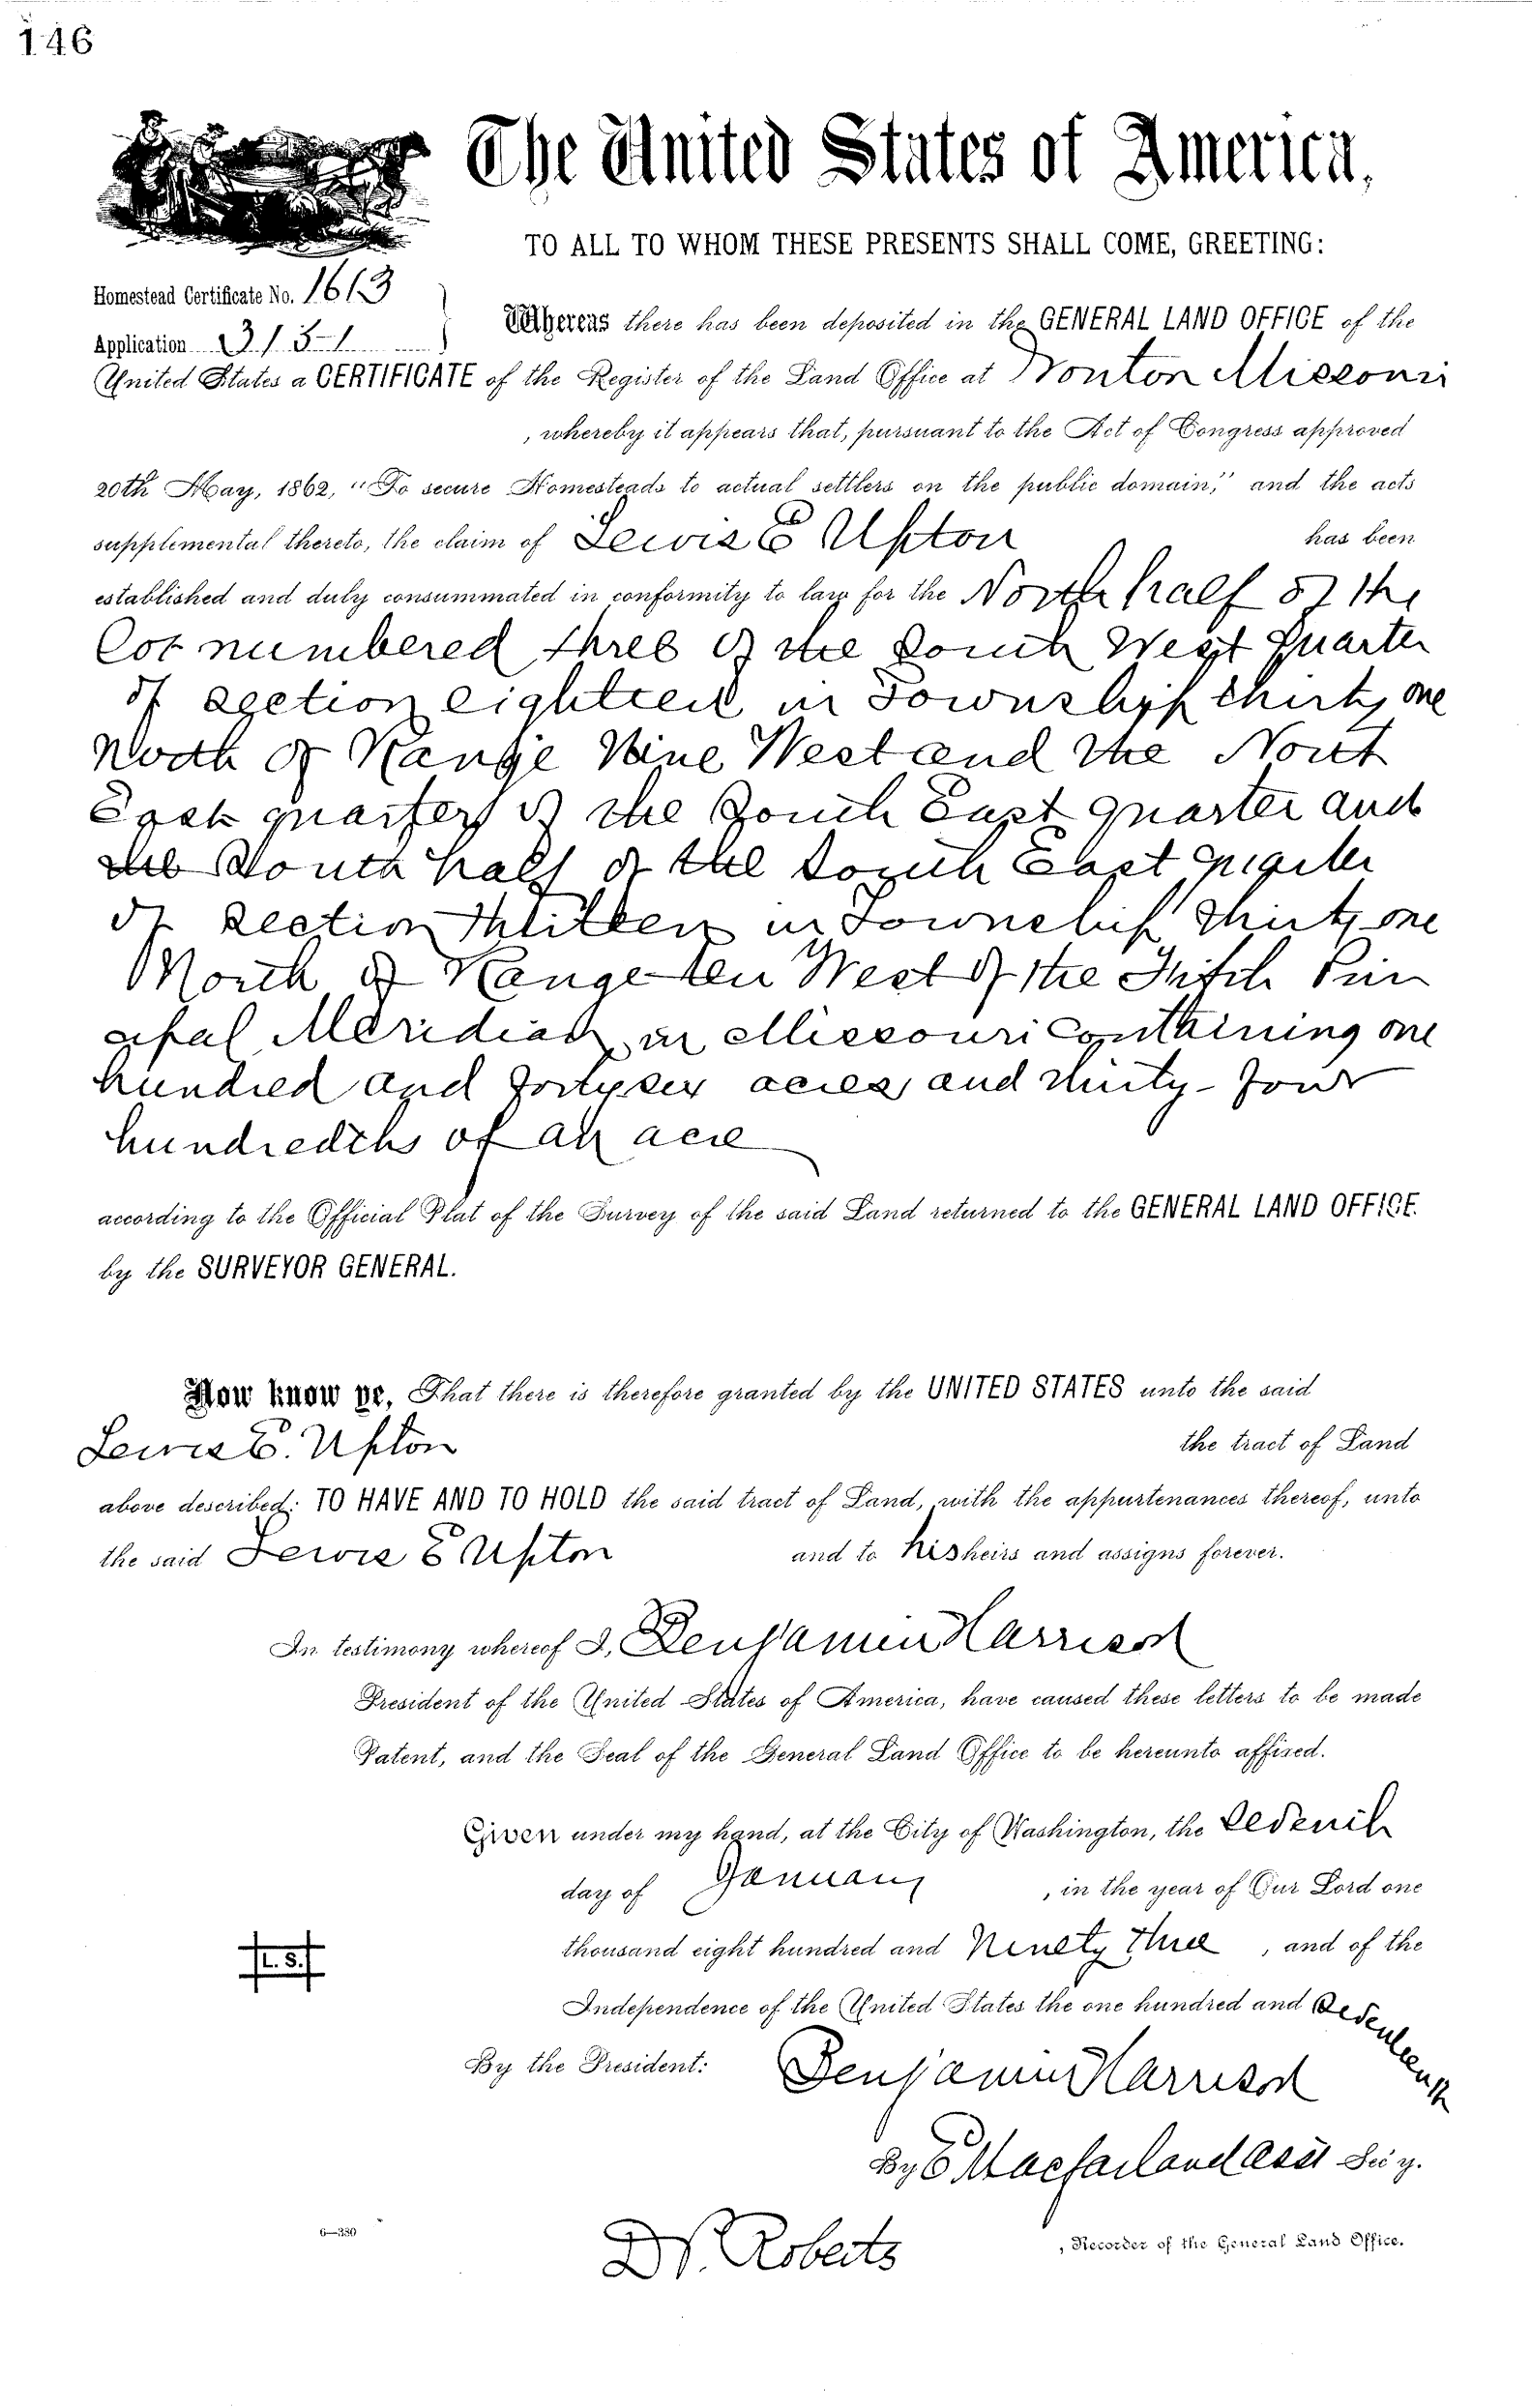 146
The United States of America,
TO ALL TO WHOM THESE PRESENTS SHALL COME, GREETING:
Homestead Certificate No. 1613
Application 3151
Whereas there has been deposited in the GENERAL LAND OFFICE of the
United States a CERTIFICATE of the Register of the Land Office at Ironton Missouri
, whereby it appears that, pursuant to the Act of Congress approved
20th May, 1862, "To secure Homesteads to actual settlers on the public domain," and the acts
supplemental thereto, the claim of Lewis E Upton has been
established and duly consummated in conformity to law for the North half of the
Lot numbered three of the South West quarter
of section eighteen in Township thirty one
North of Range Nine West and the North
East quarter of the South East quarter and
the South half of the South East quarter
of section thirteen in Township thirty one
North of Range ten West of the Fifth Prin
cipal Meridian in Missouri containing one
hundred and forty six acres and thirty-four
hundredths of an acre
according to the Official Plat of the Survey of the said Land returned to the GENERAL LAND OFFICE
by the SURVEYOR GENERAL.
Now know ye, That there is therefore granted by the UNITED STATES unto the said
Lewis E. Upton the tract of Land
above described: TO HAVE AND TO HOLD the said tract of Land, with the appurtenances thereof, unto
the said Lewis E Upton and to his heirs and assigns forever.
In testimony whereof I, Benjamin Harrison
President of the United States of America, have caused these letters to be made
Patent, and the Seal of the General Land Office to be hereunto affixed.
Given under my hand, at the City of Washington, the seventh
day of January , in the year of Our Lord one
thousand eight hundred and Ninety three , and of the
L. S.
Independence of the United States the one hundred and seventeenth
By the President: Benjamin Harrison
By E Macfarland asst Sec'y.
6—380
D. Roberts , Recorder of the General Land Office.